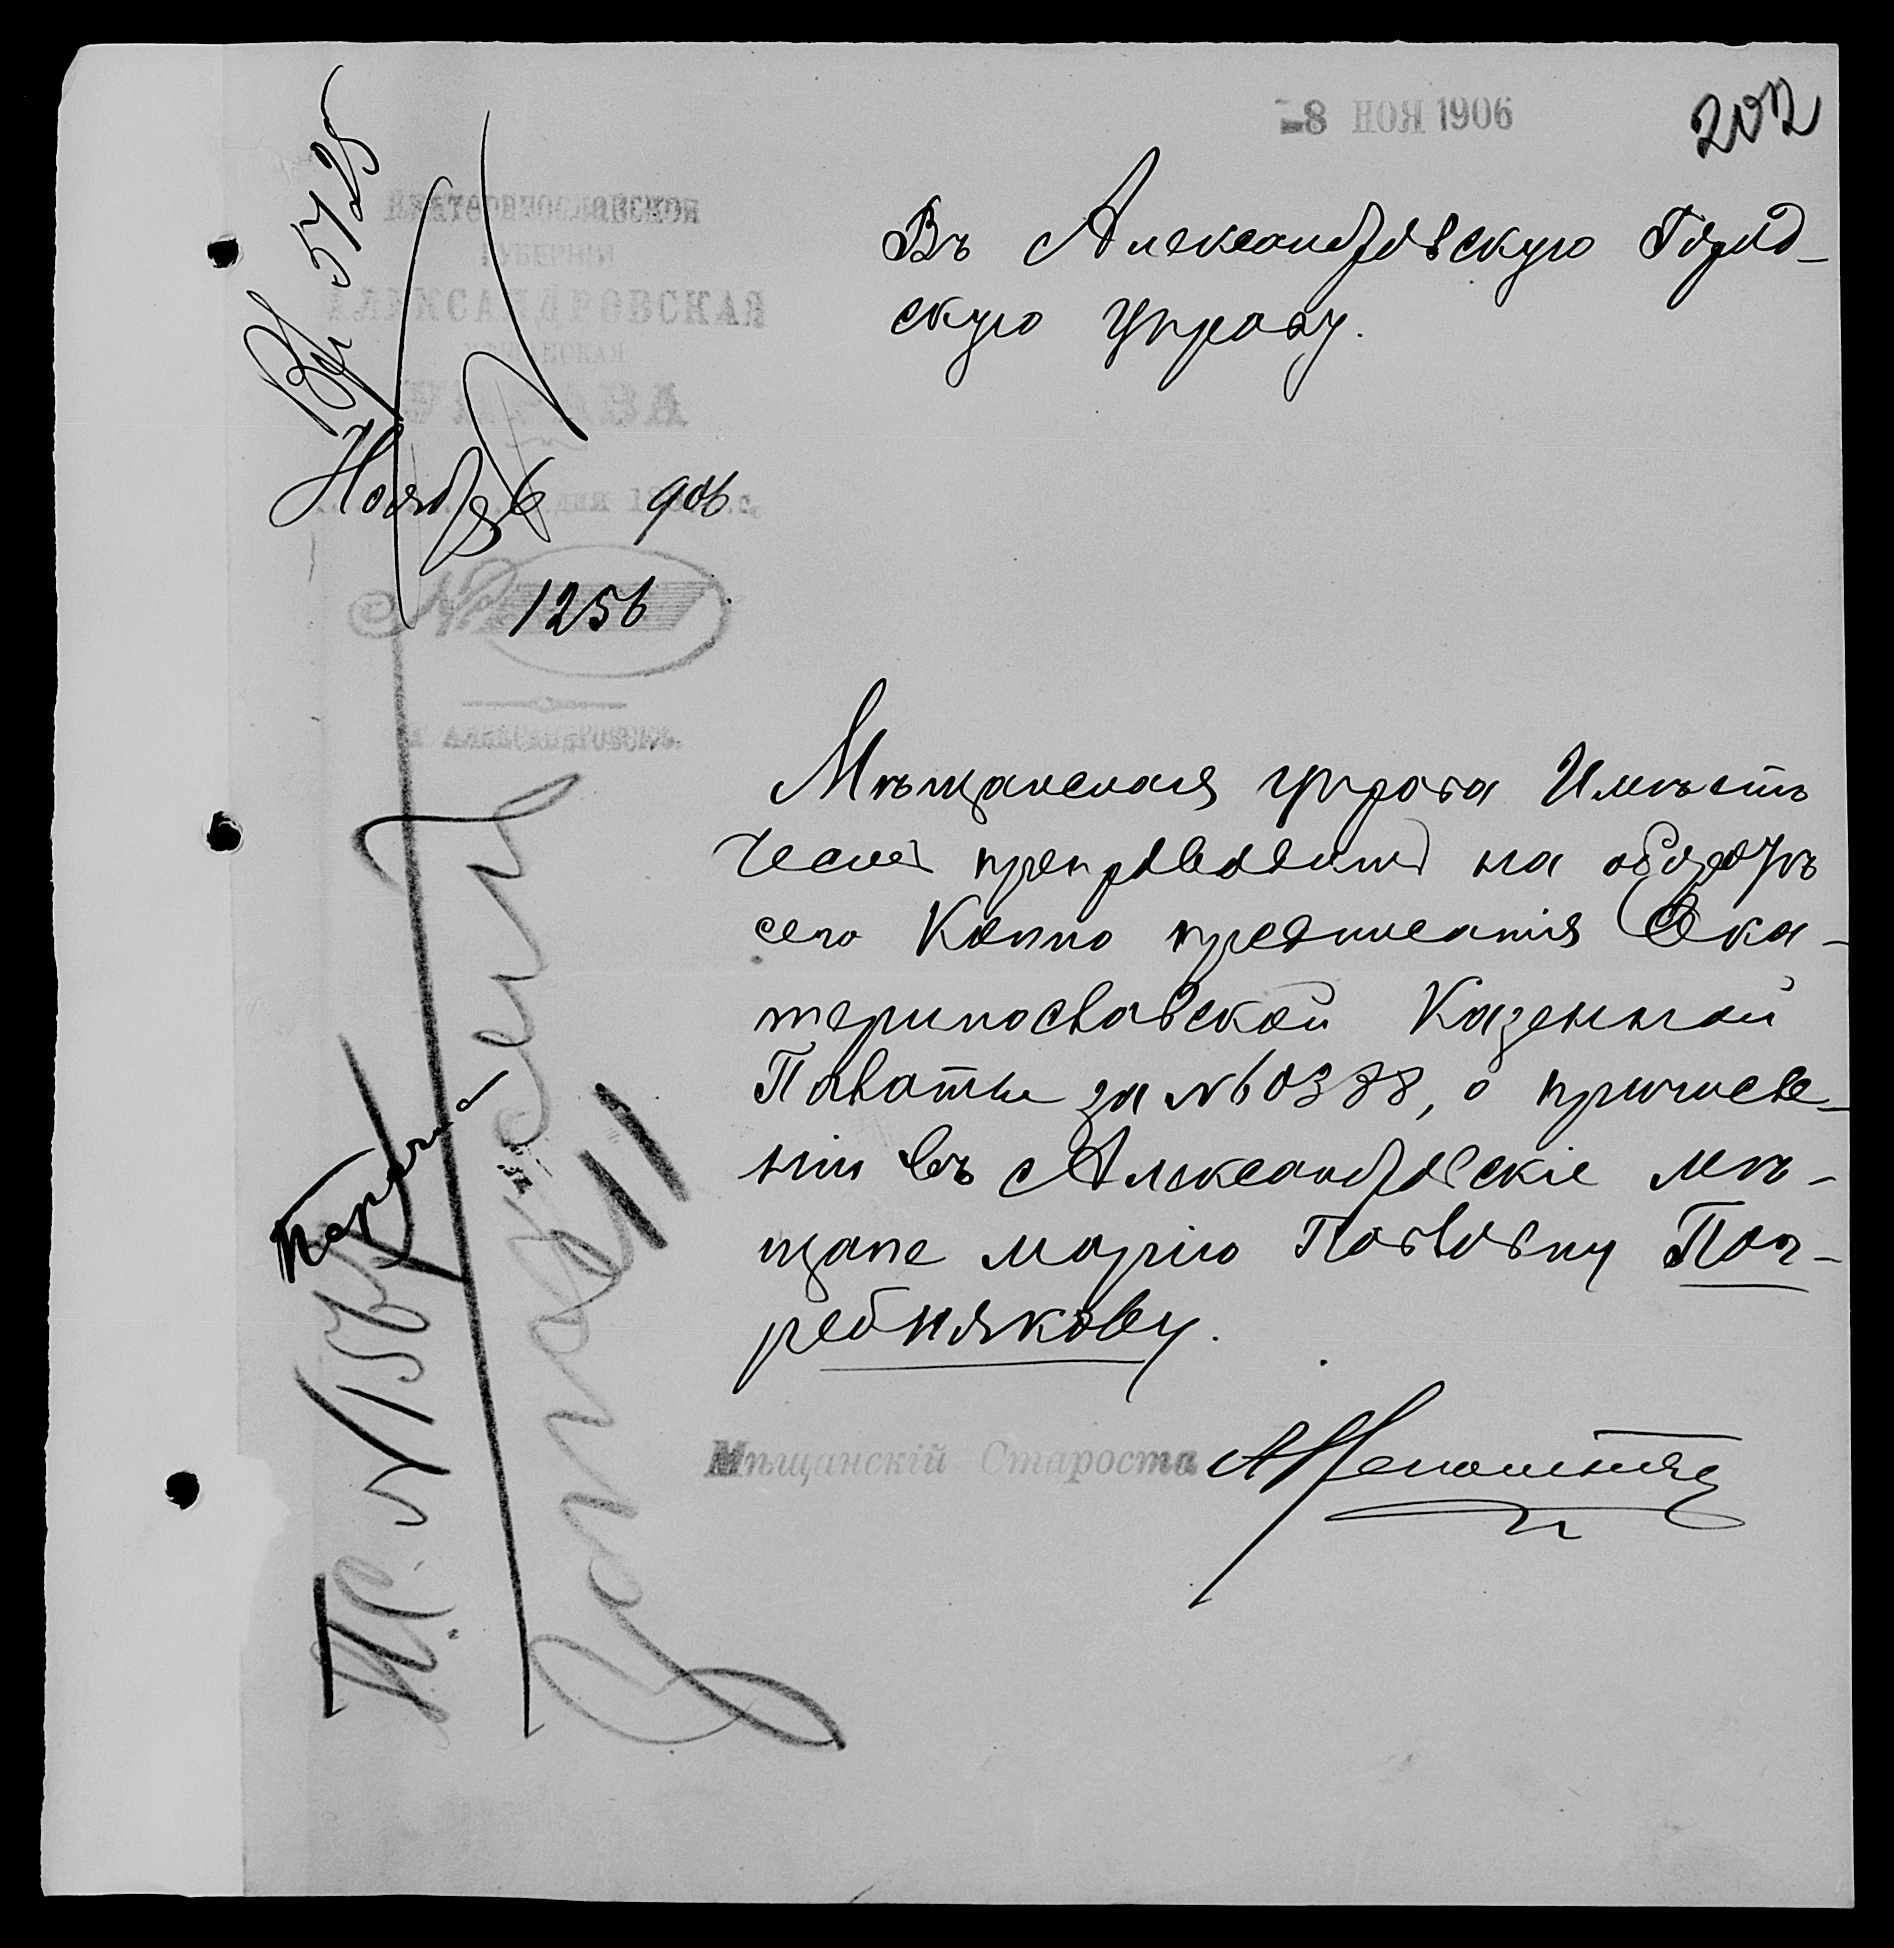 -8 НОЯ 1906
202
Вх 5725
Екатеринославской
ГУБЕРНІИ
АЛЕКСАНДРОВСКАЯ
МѢЩАНСКАЯ
УПРАВА
Ноября 6 дня 1906 г.
№ 1256
г. АЛЕКСАНДРОВСКЪ.
Въ Александровскую Город-
скую Управу.
Мѣщанская управа Имѣетъ
честь препроводить на оборотѣ
сего Копію предписанія Ека-
теринославской Казенной
Палаты за № 60388, о причисле-
ніи въ Александровскіе мѣ-
щане Марію Павловну Пог-
ребнякову.
Мѣщанскій Староста